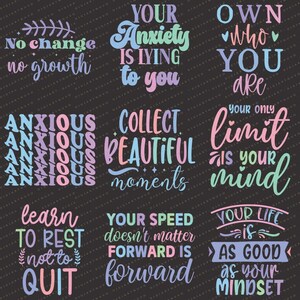 No change
no growth
YOUR
Anxiety
IS LYING
to you
OWN
who
YOU
are
ANXIOUS
ANXIOUS
ANXIOUS
ANXIOUS
COLLECT
BEAUTIFUL
moments
YOUR ONLY
limit
IS YOUR
mind
learn
TO REST
not to
QUIT
YOUR SPEED
doesn't matter
FORWARD IS
forward
YOUR LIFE
IS
AS GOOD
as your
MINDSET